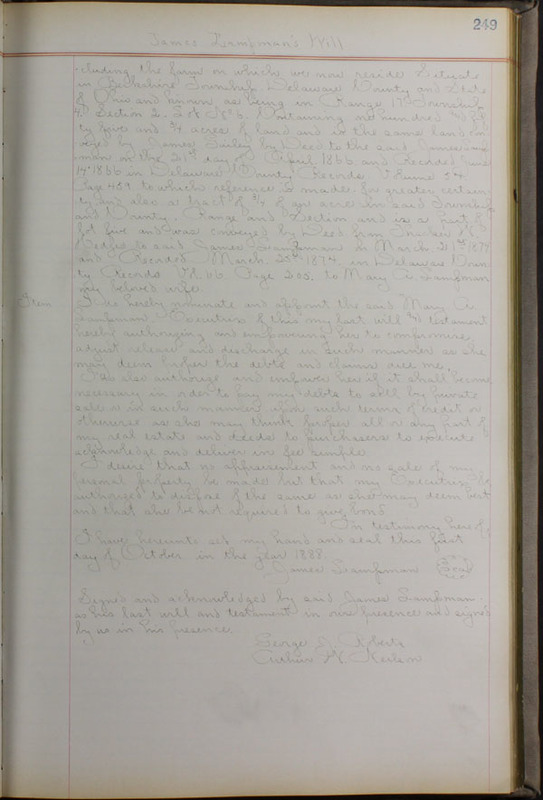 249
James Lanfman's Will
cluding the farm on which we now reside Situate
in Berkshire Township Delaware County and State
of Ohio and known as being in Range 17 Township
4 Section 2. Lot No 5. Containing one hundred and fif
ty five and 3/4 acres of land and is the same land con
veyed by James Finley by Deed to the said James
man on the 21st day of April 1866 and Recorded June
14th 1866 in Delaware County Records Volume 54
Page 459 to which reference is made for greater certain
ty and also a tract of 3/4 of an acre in said Township
and County. Range and Section and is a part of
Lot five and was conveyed by Deed from
to said James Lanfman on March 21st 1874
and Recorded March 25th 1874 in Delaware Coun
ty Records Vol. 66. Page 205. to Mary A. Lanfman
my beloved wife.
Item I do hereby nominate and appoint the said Mary A.
Lanfman Executrix of this my last will and testament
hereby authorizing and empowering her to compromise
adjust release and discharge in such manner as she
may deem proper the debts and claims due me.
I do also authorize and empower her if it shall become
necessary in order to pay my debts to sell by private
sale or in such manner upon such terms of credit or
otherwise as she may think proper all or any part of
my real estate and deeds to purchasers to execute
acknowledge and deliver in fee simple.
I desire that no appraisement and no sale of my
personal property be made but that my Executrix be
authorized to dispose of the same as she may deem best
and that she be not required to give bond.
In testimony hereof
I have hereunto set my hand and seal this first
day of October in the year 1888.
James Lanfman Seal
Signed and acknowledged by said James Lanfman
as his last will and testament in our presence and signed
by us in his presence.
George Roberts
Arthur